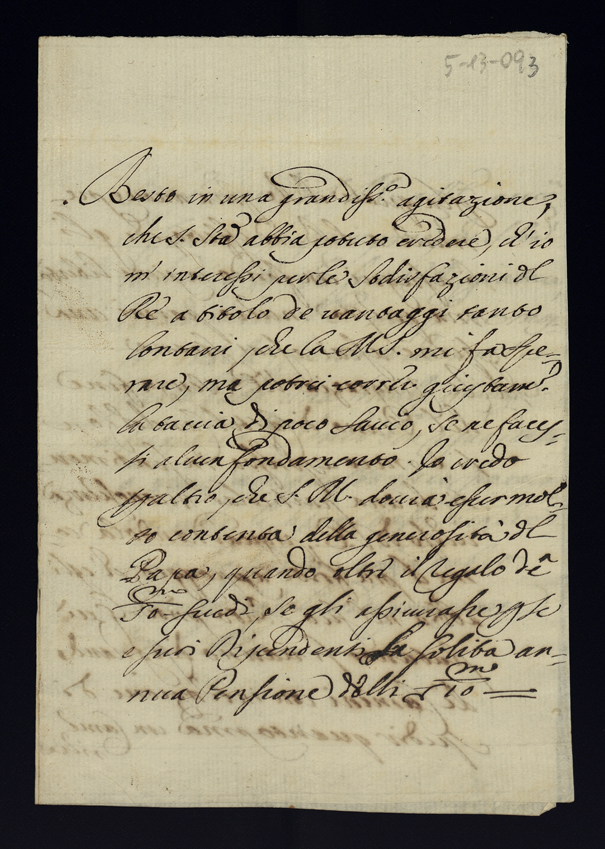 5-13-093
Resto in una grandiss.º agitazione,
che S. Stà abbia potuto credere, ch'io
m'interessi per le sodisfazioni dl
Rè a titolo de vantaggi tanto
lontani, che la M.S. mi fà spe-
rare, ma potrei correr giustam.
la taccia di poco savio, se ne faces-
si alcun fondamento. Io credo
p altro, che S. M. dovrà esser mol-
to contenta della generosità dl
Papa, quando oltre il regalo
scudi, se gli assicurasse p se
e suoi Discendenti la solita an-
nua Pensione delli